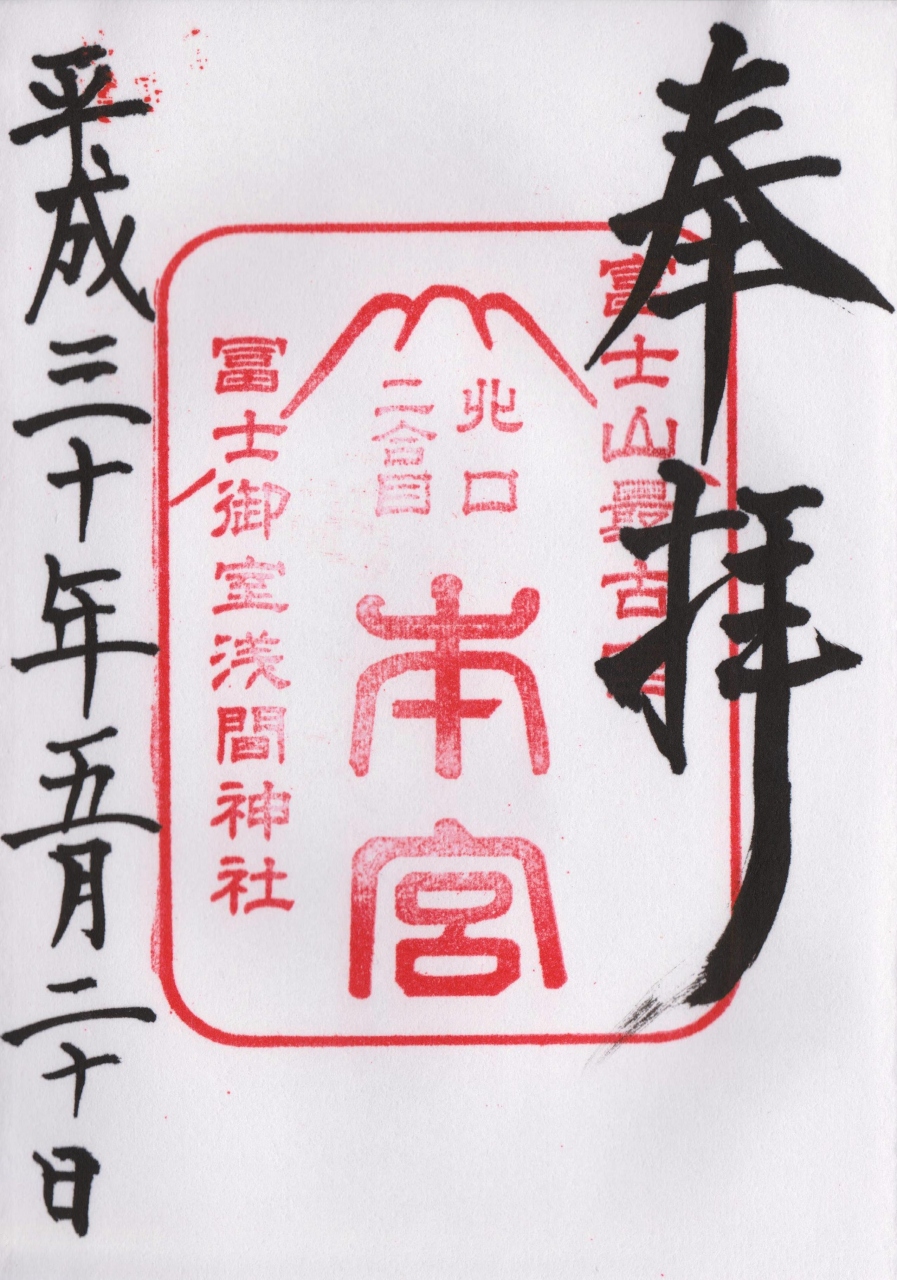 奉拝
冨士山最古宮
北口
二合目
本宮
冨士御室浅間神社
平成三十年五月二十日